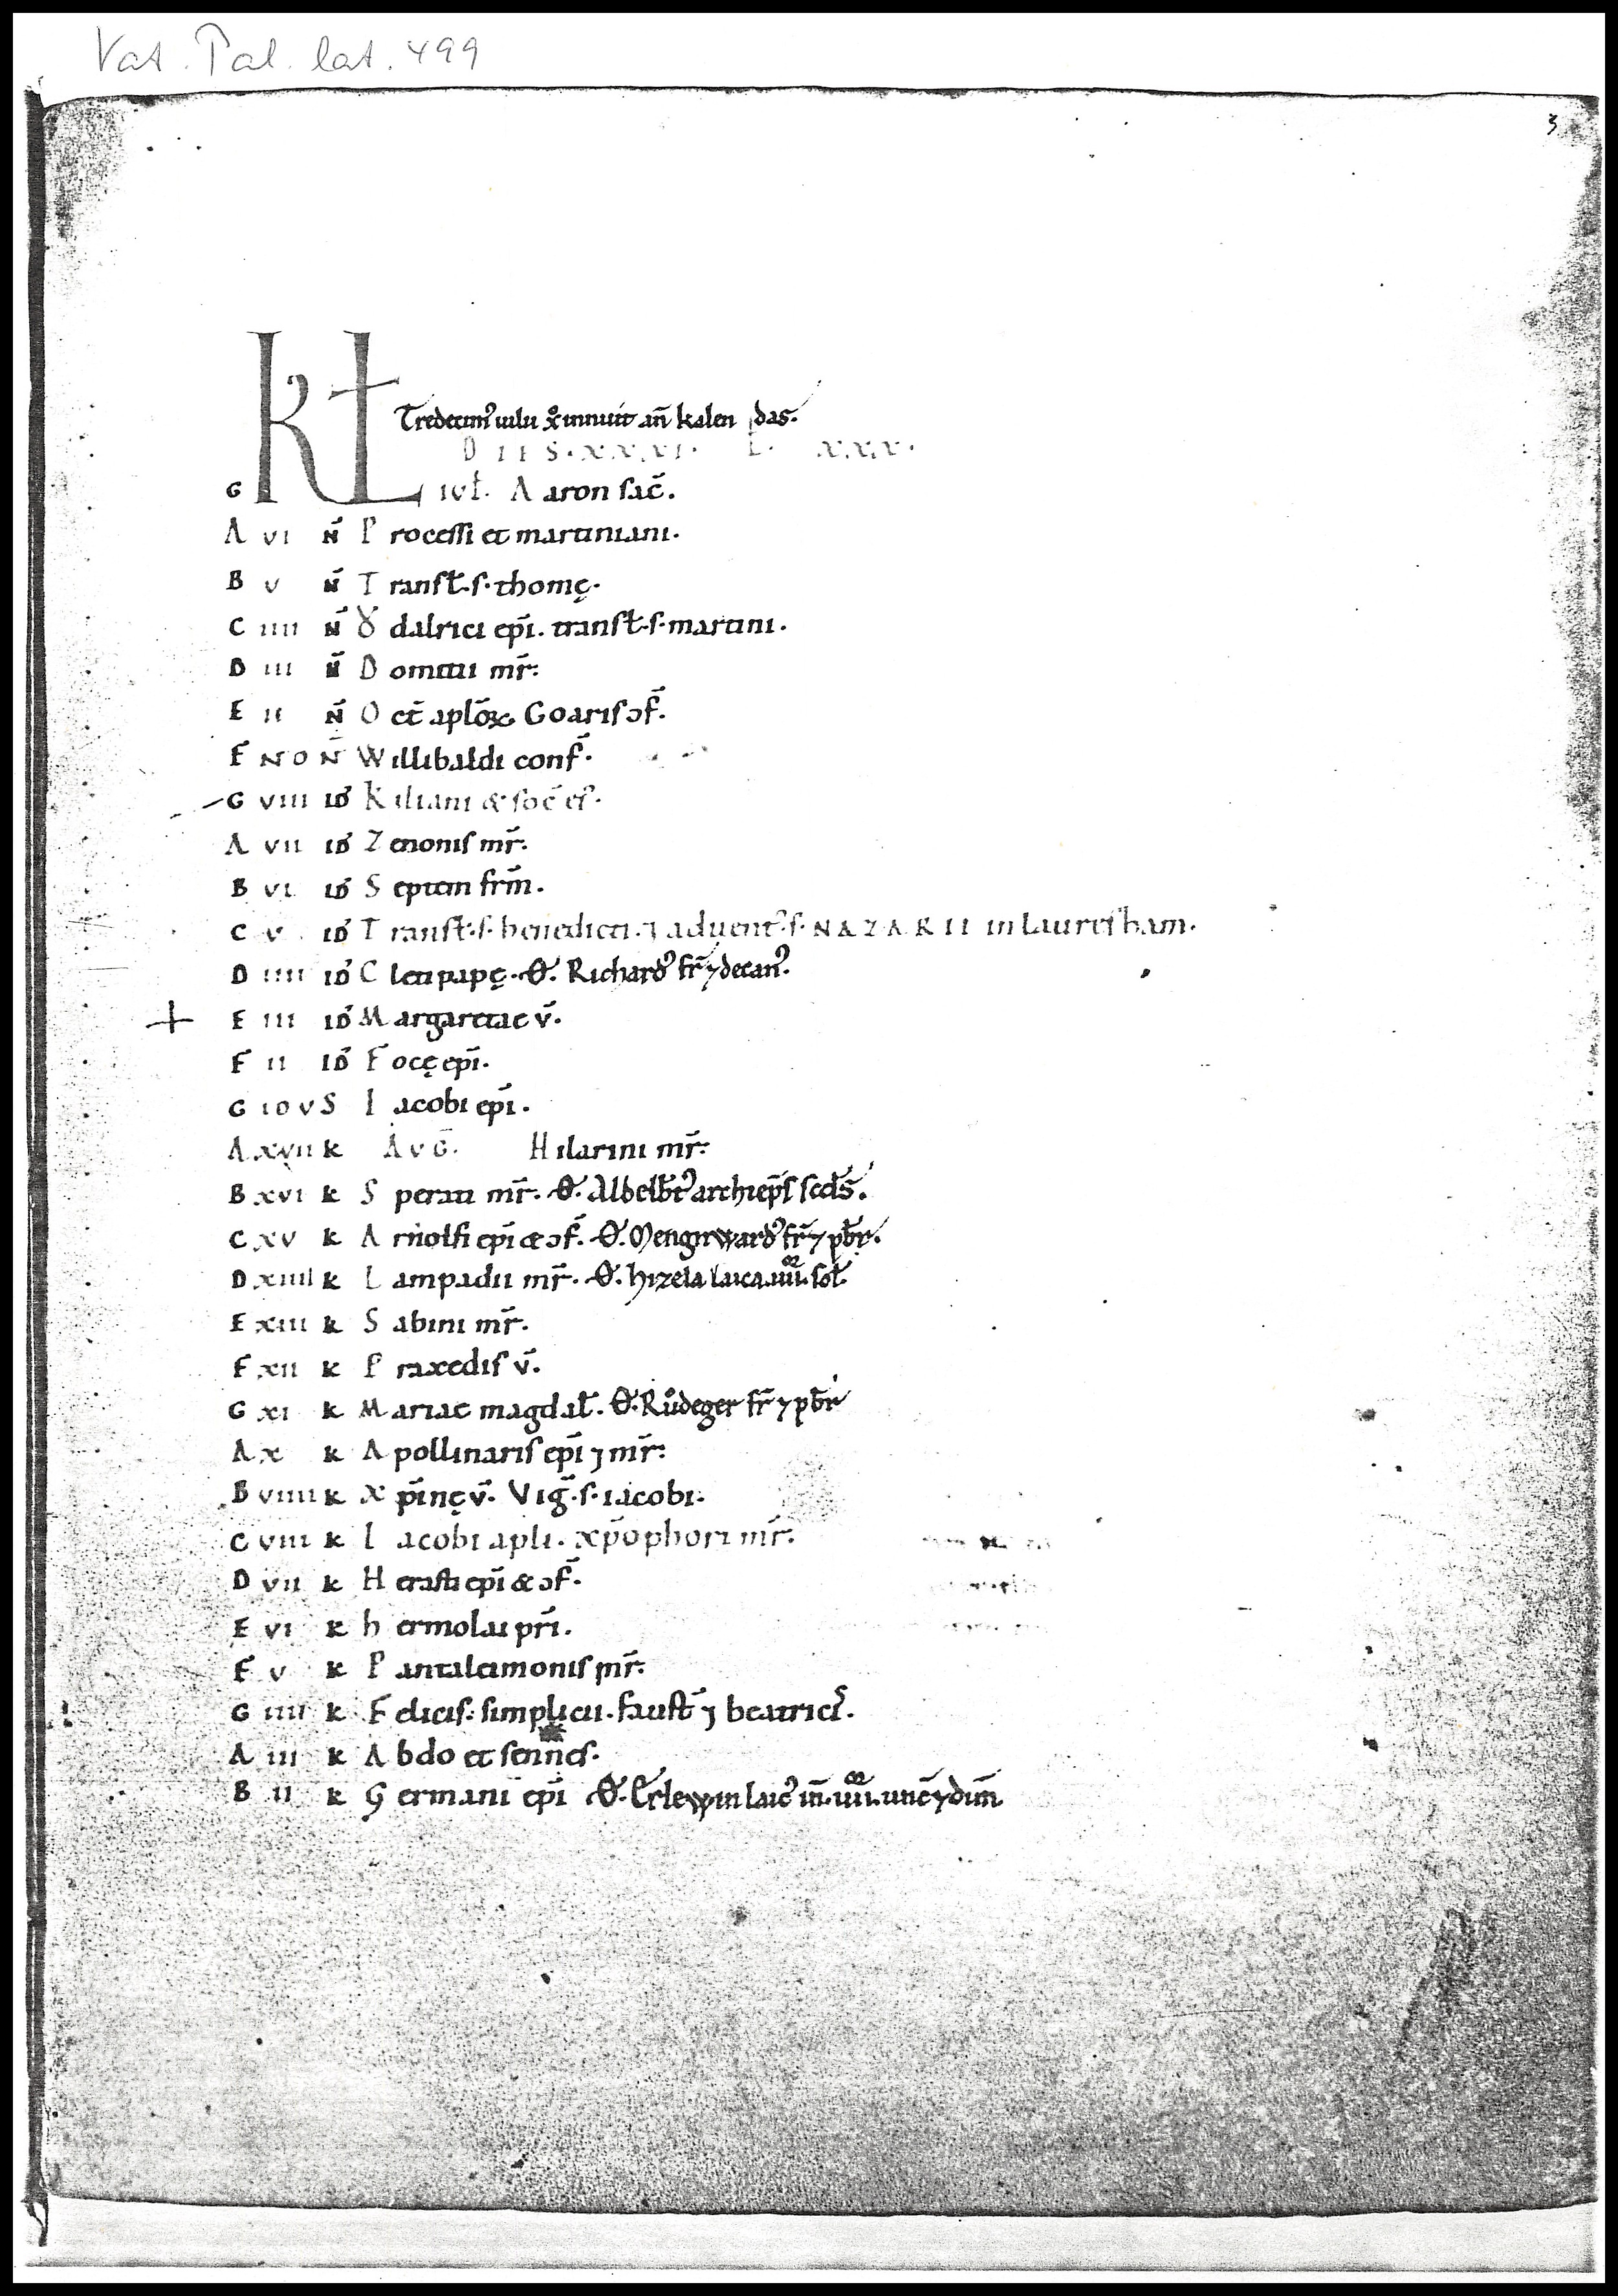 Vat. Pal. lat. 499
3
KL
Tredecim᷒ iulii x̊ innuit an̄ kalen das.
DIIS. XXXI. L. XXX.
G IUƚ. Aaron sac̄.
A VI N̄ Processi et martiniani.
B V N̄ Transƚ. s. thomę.
C IIII N̄ Ỽdalrici ep̄i. transƚ. s. martini.
D III N̄ Domitii mr̄.
E II N̄ Oct̄ aplōꝝ Goaris ɔf̄.
F NON̄ Willibaldi conf̄.
G VIII ID᷒ Kiliani & soc̄ ei᷒.
A VII ID᷒ Zenonis mr̄.
B VI ID᷒ Septem frm̄.
C V ID᷒ Transƚ. s. benedicti. ⁊ aduent᷒. s. NAZARII in Lauresham.
D IIII ID᷒ Cleti papę. Ꝋ. Richard᷒ fr̄ ⁊ decan᷒.
E III ID᷒ Margaretae v̄.
F II ID᷒ Focę ep̄i.
G IDUS Iacobi ep̄i.
A XVII K AUḠ. Hilarini mr̄.
B XVI K Sperati mr̄. Ꝋ. Adelbt᷒ archiep̄s scd̄s.
C XV K Arnolfi ep̄i & ɔf̄. Ꝋ. Mengirward᷒ fr̄ ⁊ pb̄r.
D XIIII K Lampadii mr̄. Ꝋ. hizela laica. iiii. soƚ.
E XIII K Sabini mr̄.
F XII K Praxedis v̄.
G XI K Mariae magdaƚ. Ꝋ. Růdeger fr̄ ⁊ pb̄r
A X K Apollinaris ep̄i ⁊ mr̄.
B VIIII K Xp̄inę v̄. Viḡ. s. iacobi.
C VIII K Iacobi apli. xp̄ophori mr̄.
D VII K Herasti ep̄i & ɔf̄.
E VI K hermolai pr̄i.
F V K Pantaleimonis mr̄.
G IIII K Felicis. simplicii. faust̄ ⁊ beatrici᷒.
A III K Abdo et sennes.
B II K Germani ep̄i Ꝋ. Erlewin laic᷒ in̄. iiii. unc̄ ⁊ dim̄.